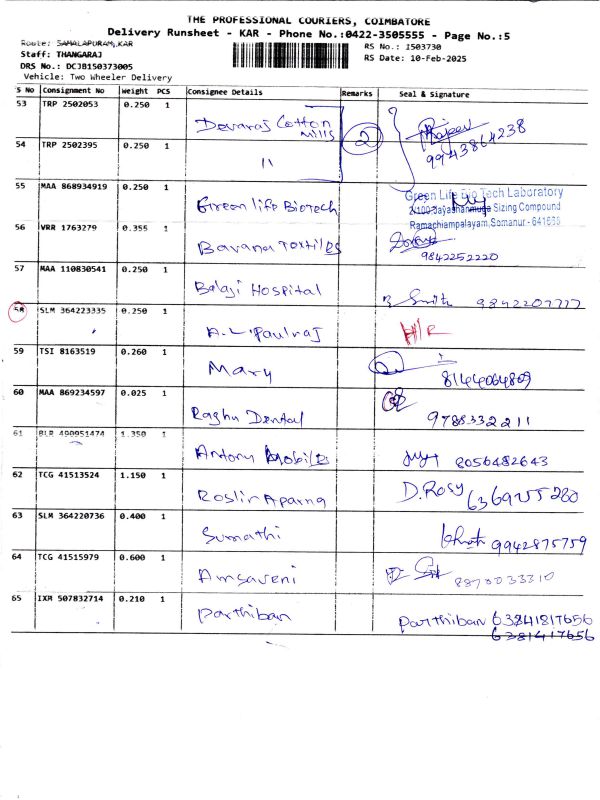 THE PROFESSIONAL COURIERS, COIMBATORE
Delivery Runsheet - KAR - Phone No.:0422-3505555 - Page No.:5
Route: SAMALAPURAM,KAR
RS No.: I503730
Staff: THANGARAJ
RS Date: 10-Feb-2025
DRS No.: DCJB1S0373005
Vehicle: Two Wheeler Delivery
S No Consignment No Weight PCS Consignee Details Remarks Seal & Signature
53 TRP 2502053 0.250 1 Devaraj Cotton Mills 2 Rajeev 9943864238
54 TRP 2502395 0.250 1 "
55 MAA 868934919 0.250 1 Green life Biotech
Green Life Bio Tech Laboratory
2/100 Jayashanmuga Sizing Compound
Ramachiampalayam, Somanur - 641668
56 VRR 1763279 0.355 1 Bavana Textiles 9842252220
57 MAA 110830541 0.250 1 Balaji Hospital
58 SLM 364223335 0.250 1 A.L. Paulraj H/R
59 TSI 8163519 0.260 1 Mary 8144064809
60 MAA 869234597 0.025 1 Raghu Dental 9788332211
61 BLR 490951474 1.350 1 Antony Mobiles 8056482643
62 TCG 41513524 1.150 1 Roslin Aparna D. Rosy 6369255280
63 SLM 364220736 0.400 1 Sumathi 9942875759
64 TCG 41515979 0.600 1 Amsaveni 8870033310
65 IXM 507832714 0.210 1 Parthiban Parthiban 6384181​7656
6381417656